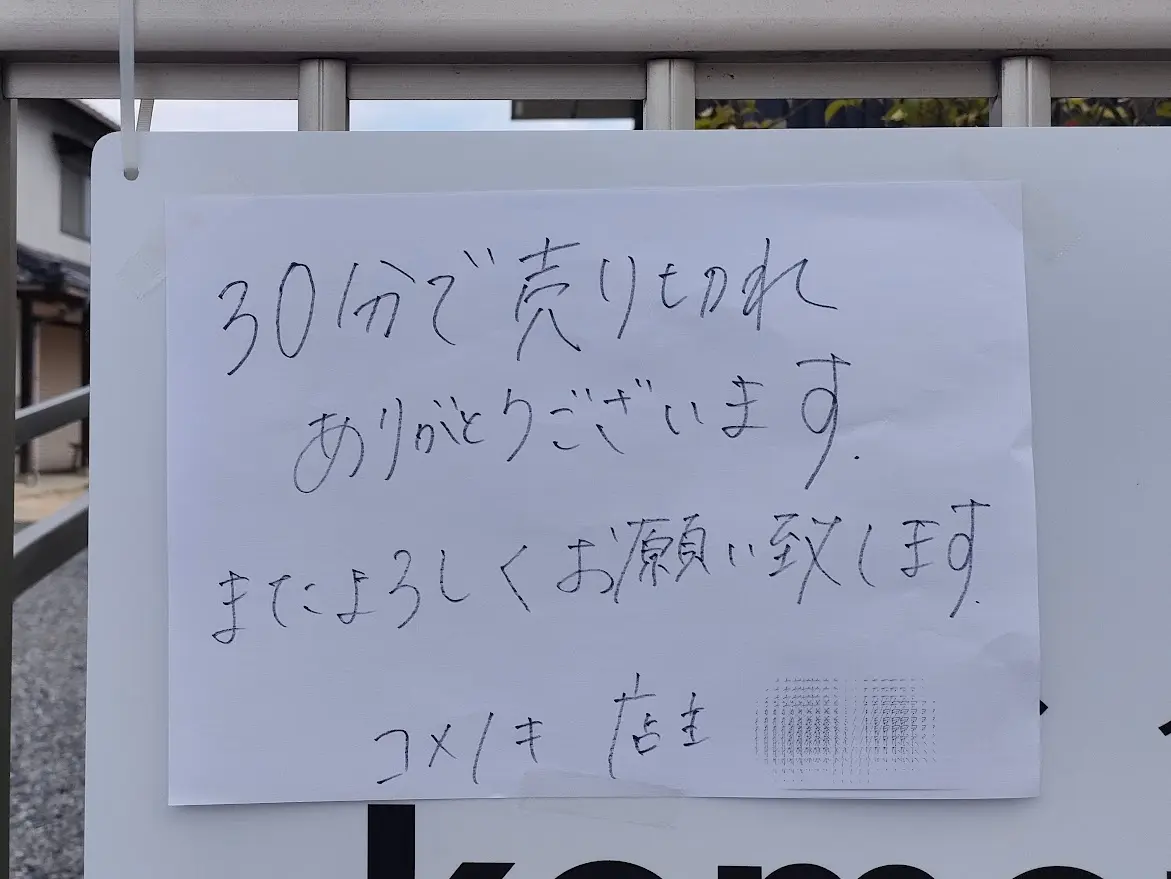 30分で売り切れ
ありがとうございます.
またよろしくお願い致します.
コメノキ 店主